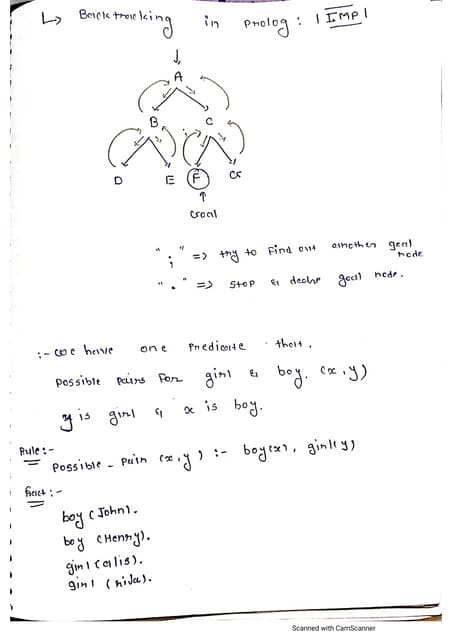 ↳ Backtracking in Prolog : | IMP |
A
B C
D E F G
Goal
" ; " => try to find out another goal node
" . " => stop & declare goal node.
:- we have one predicate that.
possible pairs for girl & boy. (x,y)
y is girl & x is boy.
Rule :-
possible - pair (x,y) :- boy(x), girl(y)
fact :-
boy (John).
boy (Henry).
girl (alis).
girl (nida).
Scanned with CamScanner